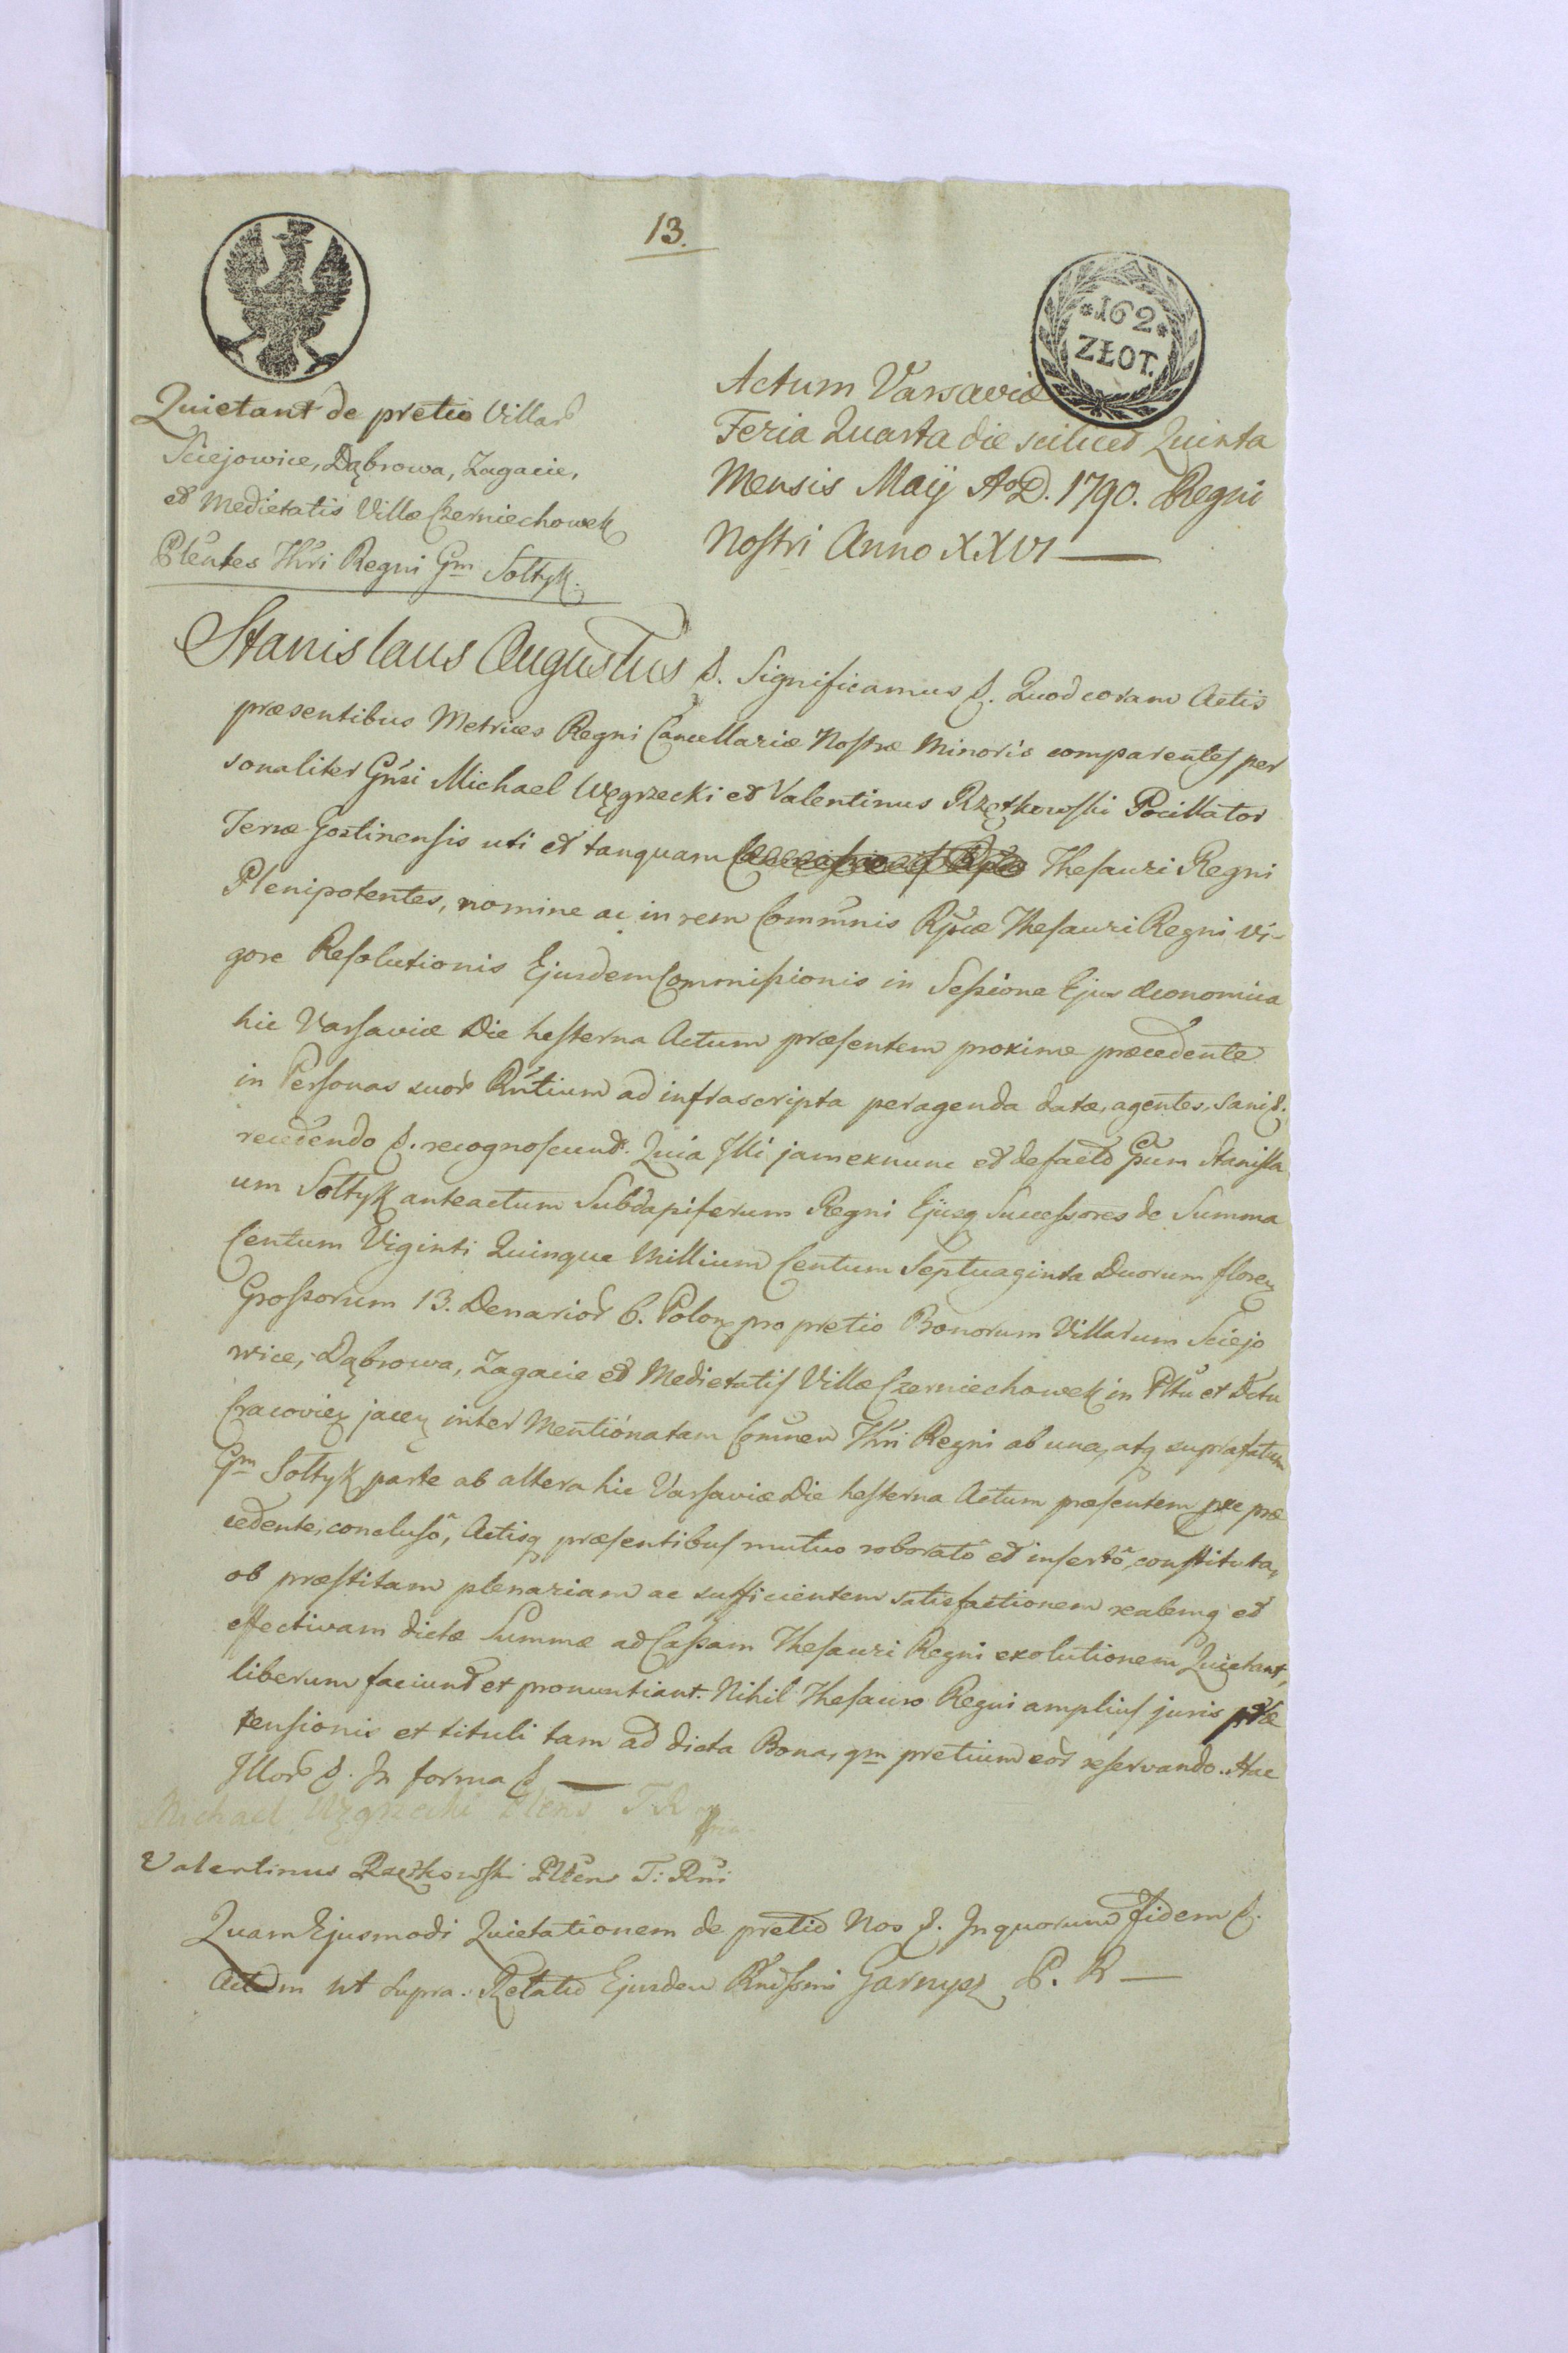 13.
*162*
ZŁOT.
Actum Varsaviæ
Feria Quarta die scilicet Quinta
Mensis Maij AoD. 1790. Regni
Nostri Anno XXVI —
Quietant de pretio Villar
Sciejowice, Dąbrowa, Zagacie,
et Medietatis Villæ Czerniechowek
Plentes Thri Regni Gm Sołtyk.
Stanislaus Augustus &. Significamus &. Quod coram Actis
præsentibus Metrices Regni Cancellariæ Nostræ Minoris comparentes per
sonaliter Gnsi Michael Węgrzecki et Valentinus Rzętkowski Pocillator
Terræ Gostinensis uti et tanquam Thesauri Regni
Plenipotentes, nomine ac in rem Commnis Rptcæ Thesauri Regni vi-
gore Resolutionis Ejusdem Commissionis in Sessione Ejus œconomica
hic Varsaviæ Die hesterna Actum præsentem proxime præcedente
in Personas suor Rntium ad infrascripta peragenda datæ, agentes, sani &.
recedendo &. recognoscunt. Quia Illi jam exnunc et defacto Gsum Stanisla
um Sołtyk anteactum Subdapiferum Regni Ejusq Successores de Summa
Centum Viginti Quinque Millium Centum Septuaginta Duorum floren
Grossorum 13. Denarior 6. Polon pro pretio Bonorum Villarum Sciejo
wice, Dąbrowa, Zagacie et Medietatis Villæ Czerniechowek in Pltu et Dctu
Cracovien jacen inter Mentionatam Comnem Thri Regni ab una, atq suprafatum
Gm Sołtyk parte ab altera hic Varsaviæ Die hesterna Actum præsentem præ
cedente, conclusô, Actisq præsentibus mutuo roboratô et insertô, constituta,
ob præstitam plenariam ac sufficientem satisfactionem realemq et
effectivam dictæ Summæ ad Cassam Thesauri Regni exolutionem Quietant,
liberum faciunt et pronuntiant. Nihil Thesauro Regni amplius juris præ
tensionis et tituli tam ad dicta Bona, qm pretium eor reservando. Hac
Illor &. In forma & —
Michael Węgrzecki Plens T.R
Valentinus Rzętkowski Pltens T: Rni
Quam Ejusmodi Quietationem de pretio Nos &. In quorum fidem &.
Actum ut supra. Relatio Ejusdem Rndssmi Garnysz P. R —